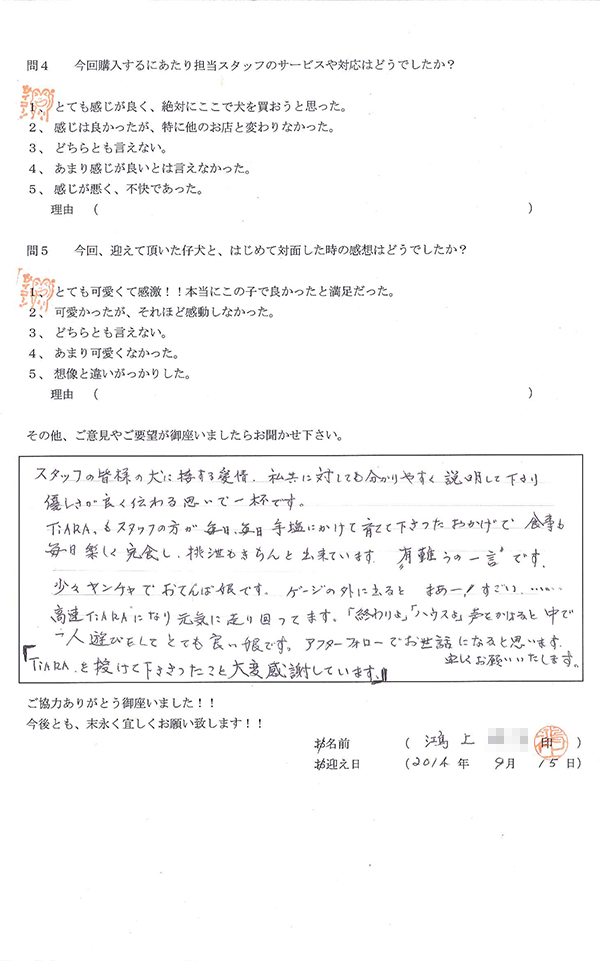 問4 今回購入するにあたり担当スタッフのサービスや対応はどうでしたか？
1、とても感じが良く、絶対にここで犬を買おうと思った。
2、感じは良かったが、特に他のお店と変わりなかった。
3、どちらとも言えない。
4、あまり感じが良いとは言えなかった。
5、感じが悪く、不快であった。
理由 （ ）
問5 今回、迎えて頂いた仔犬と、はじめて対面した時の感想はどうでしたか？
1、とても可愛くて感激！！本当にこの子で良かったと満足だった。
2、可愛かったが、それほど感動しなかった。
3、どちらとも言えない。
4、あまり可愛くなかった。
5、想像と違いがっかりした。
理由 （ ）
その他、ご意見やご要望が御座いましたらお聞かせ下さい。
スタッフの皆様の犬に接する愛情、私共に対しても分かりやすく説明して下さり
優しさが良く伝わる思いで一杯です。
TiARA、もスタッフの方が毎日、毎日手塩にかけて育てて下さったおかげで食事も
毎日楽しく完食し、排泄もきちんと出来ています。"有難うの一言"です。
少々ヤンチャでおてんば娘です。ゲージの外に出ると まあー！すごい……
高速TiARAになり元気に走り回ってます。「終わりよ」「ハウスよ」声をかけると中で
一人遊びをしてとても良い娘です。アフターフォローでお世話になると思います。
宜しくお願いいたします。
「TiARA、を授けて下さったこと大変感謝しています。」
ご協力ありがとう御座いました！！
今後とも、末永く宜しくお願い致します！！
お名前 （ 鴻上 印 ）
お迎え日 （2014年 9月 15日）